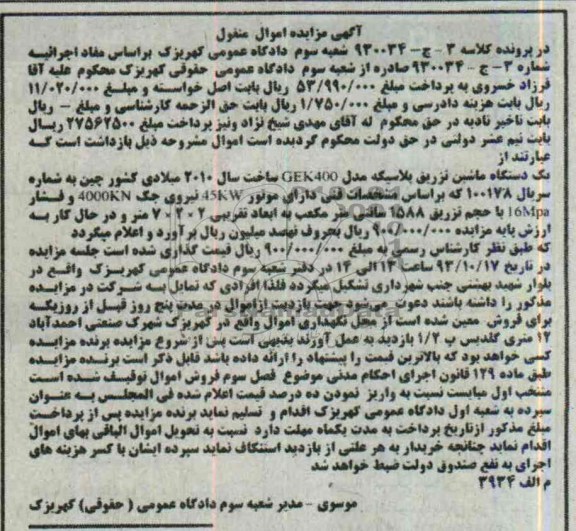 آگهی مزایده اموال منقول
در پرونده کلاسه ۳ - ج- ۹۳۰۰۳۴ شعبه سوم دادگاه عمومی کهریزک براساس مفاد اجرائیه
شماره ۳- ج - ۹۳۰۰۳۴ صادره از شعبه سوم دادگاه عمومی حقوقی کهریزک محکوم علیه آقا
فرزاد خسروی به پرداخت مبلغ ۵۳/۹۹۰/۰۰۰ ریال بابت اصل خواسته و مبلغ ۱۱/۰۲۰/۰۰۰
ریال بابت هزینه دادرسی و مبلغ ۱/۷۵۰/۰۰۰ ریال بابت حق الزحمه کارشناسی و مبلغ - ریال
بابت تاخیر تادیه در حق محکوم له آقای مهدی شیخ نژاد ونیز پرداخت مبلغ ۲۷۵۶۲۵۰۰ ریال
بابت نیم عشر دولتی در حق دولت محکوم گردیده است اموال مشروحه ذیل بازداشت است که
عبارتند از
یک دستگاه ماشین تزریق پلاسیکه مدل GEK400 ساخت سال ۲۰۱۰ میلادی کشور چین به شماره
سریال ۱۰۰۱۷۸ که براساس مشخصات فنی دارای موتور 45KW نیروی جک 4000KN و فشار
16Mpa با حجم تزریق ۱۵۸۸ سانتی متر مکعب به ابعاد تقریبی ۲ × ۲ × ۷ متر و در حال کار به
ارزش پایه مزایده ۹۰۰/۰۰۰/۰۰۰ ریال بحروف نهصد میلیون ریال برآورد و اعلام میگردد
که طبق نظر کارشناس رسمی به مبلغ ۹۰۰/۰۰۰/۰۰۰ ریال قیمت گذاری شده است جلسه مزایده
در تاریخ ۹۳/۱۰/۱۷ ساعت ۱۳ الی ۱۴ در دفتر شعبه سوم دادگاه عمومی کهریزک واقع در
بلوار شهید بهشتی جنب شهرداری تشکیل میگردد فلذا افرادی که تمایل به شرکت در مزایده
مذکور را داشته باشند دعوت می شود جهت بازدید ازاموال در مدت پنج روز قبل از روزیکه
برای فروش معین شده است از محل نگهداری اموال واقع در کهریزک شهرک صنعتی احمدآباد
۱۲ متری گلدیس پ ۱/۲ بازدید به عمل آورند بدیهی است پس از شروع مزایده برنده مزایده
کسی خواهد بود که بالاترین قیمت را پیشنهاد را ارائه داده باشد قابل ذکر است برنده مزایده
طبق ماده ۱۲۹ قانون اجرای احکام مدنی موضوع فصل سوم فروش اموال توقیف شده است
منتخب اول میبایست نسبت به واریز نمودن ده درصد قیمت اعلام شده فی المجلس به عنوان
سپرده به شعبه اول دادگاه عمومی کهریزک اقدام و تسلیم نماید برنده مزایده پس از پرداخت
مبلغ مذکور ازتاریخ پرداخت به مدت یکماه مهلت دارد نسبت به تحویل اموال الباقی بهای اموال
اقدام نماید چنانچه خریدار به هر علتی از بازدید استنکاف نماید سپرده ایشان با کسر هزینه های
اجرای به نفع صندوق دولت ضبط خواهد شد
م الف ۳۹۳۴
موسوی - مدیر شعبه سوم دادگاه عمومی ( حقوقی) کهریزک